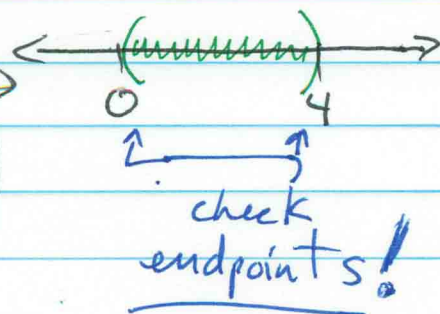 0 4
check
endpoints!